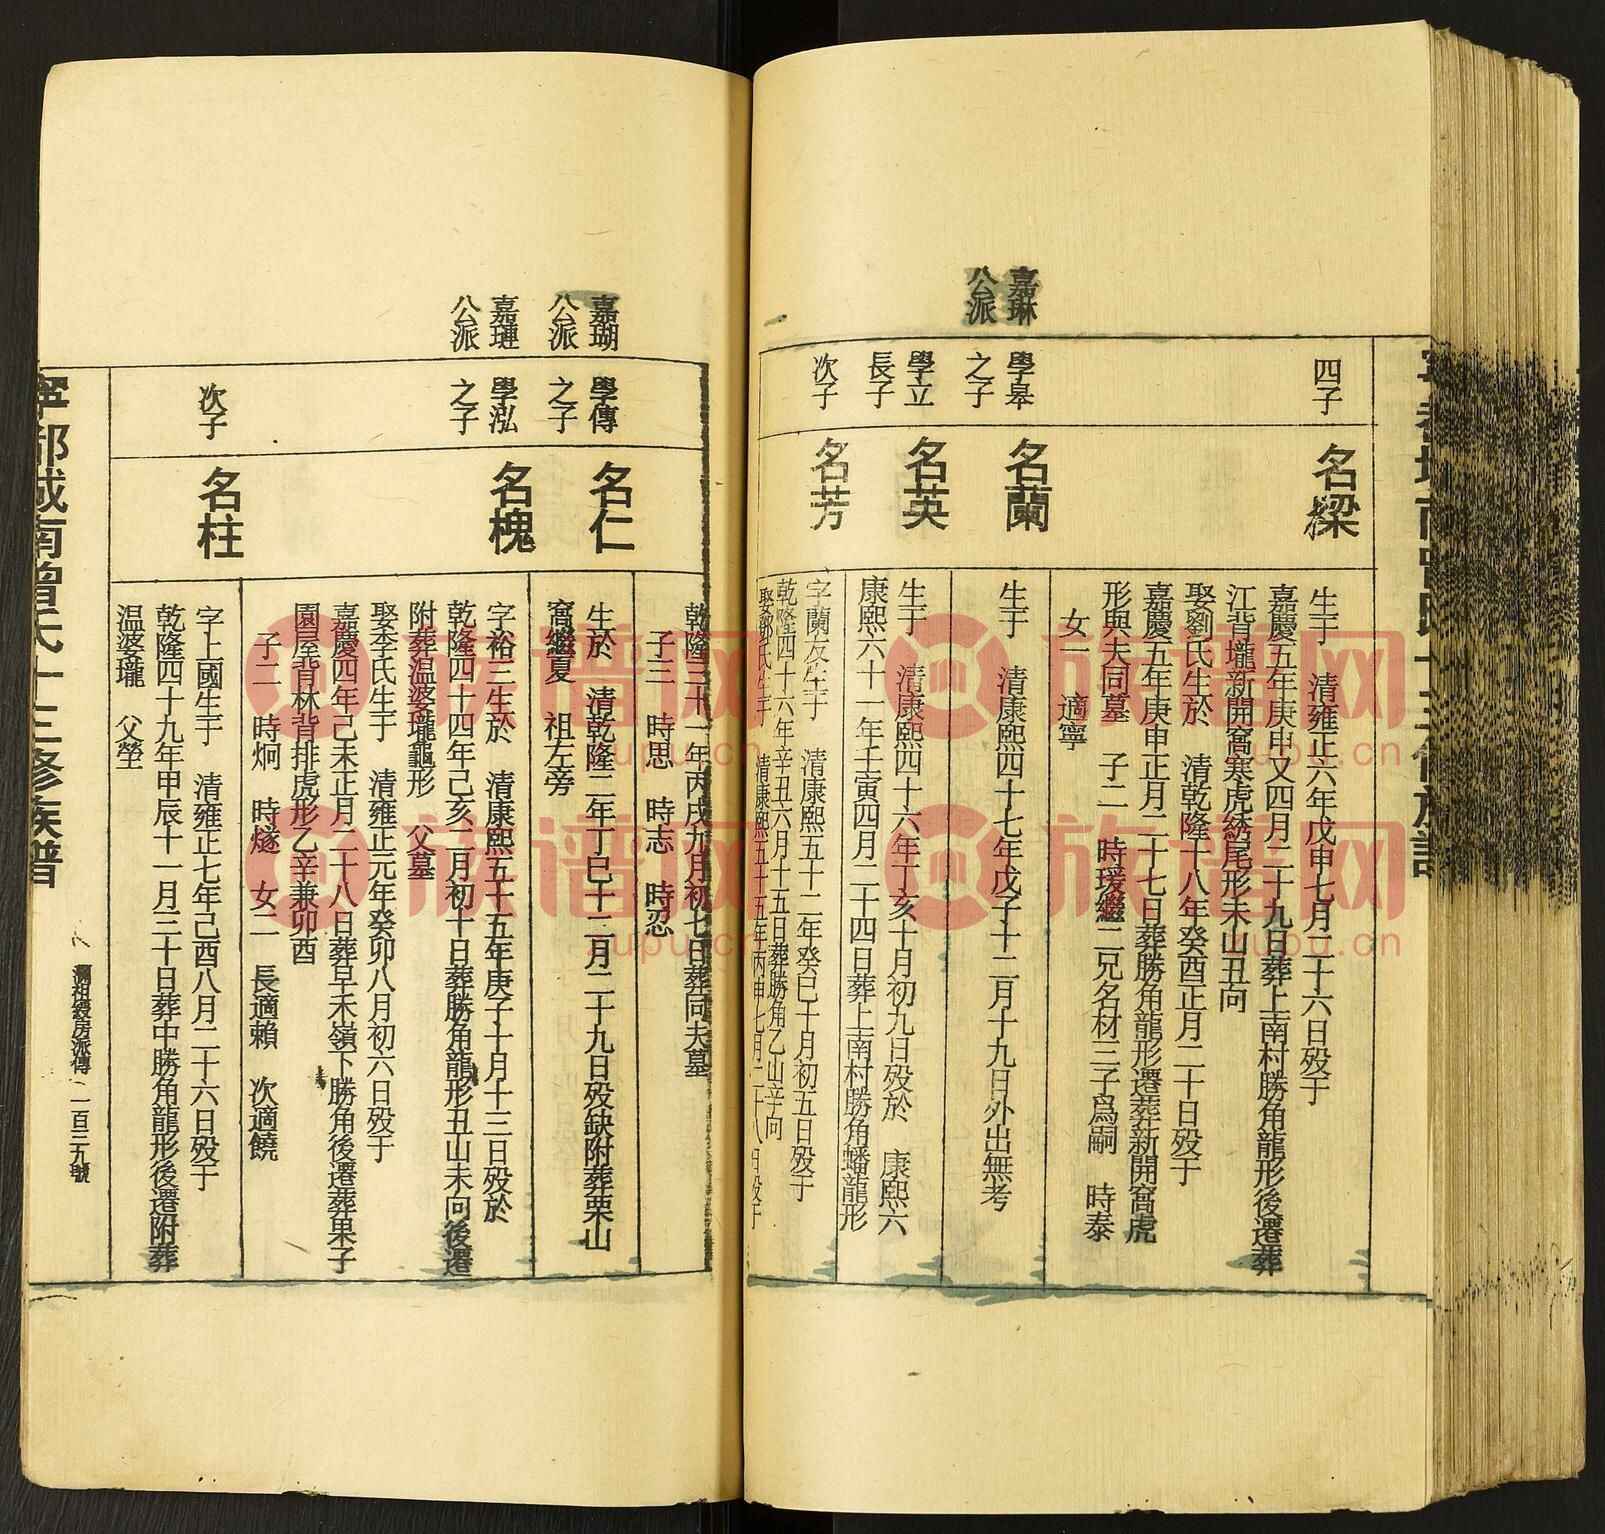 四子
名樑
生于　清雍正六年戊申七月二十六日殁于
嘉慶五年庚申又四月二十九日葬上南村勝角龍形後遷葬
江背壠新開窩寒虎綉尾形未山丑向
娶劉氏生於　清乾隆十八年癸酉正月二十日殁于
嘉慶五年庚申正月二十七日葬勝角龍形遷葬新開窩虎
形與夫同墓　子二　時瑗繼二兄名材三子爲嗣　時泰
女一　適寧
嘉琳
公派
學皋
之子
名蘭
生于　清康熙四十七年戊子十二月十九日外出無考
學立
長子
名英
生于　清康熙四十六年丁亥十月初九日殁於　康熙六
康熙六十一年壬寅四月二十四日葬上南村勝角蟠龍形
次子
名芳
字蘭友生于　清康熙五十二年癸巳十月初五日殁于
乾隆四十六年辛丑六月十五日葬勝角乙山辛向
娶鄭氏生于　清康熙五十五年丙申七月二十八日殁于
乾隆三十一年丙戌九月初七日葬同夫墓
子三　時思　時志　時忍
嘉瑚
公派
學傳
之子
名仁
生於　清乾隆二年丁巳十二月二十九日殁缺附葬栗山
窩繼夏　祖左旁
嘉璉
公派
學泓
之子
名槐
字裕三生於　清康熙五十五年庚子十月十三日殁於
乾隆四十四年己亥二月初十日葬勝角龍形丑山未向後遷
附葬温婆壠龜形　父墓
娶李氏生于　清雍正元年癸卯八月初六日殁于
嘉慶四年己未正月二十八日葬早禾嶺下勝角後遷葬果子
園屋背林背排虎形乙辛兼卯酉
子二　時炯　時燧　女二　長適賴　次適饒
次子
名柱
字上國生于　清雍正七年己酉八月二十六日殁于
乾隆四十九年甲辰十一月三十日葬中勝角龍形後遷附葬
温婆壠　父塋
寧都城南曾氏十三修族譜
房派傳　一百三九號
族谱网
zupu.cn
族谱网
zupu.cn
族谱网
zupu.cn
族谱网
zupu.cn